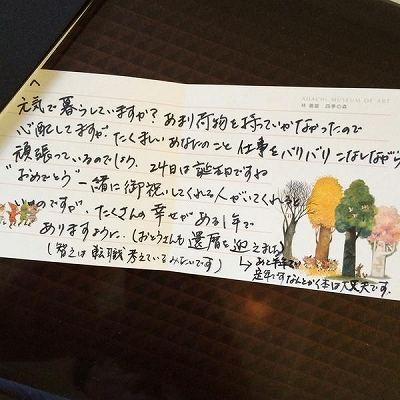 へ
AHACHI MUSEUM OF ART
林 義雄 四季の森
元気で暮らしていますか？あまり荷物を持っていかなかったので
心配してますが、たくましいあなたのこと 仕事をバリバリこなしながら
頑張っているのでしょう。24日は誕生日ですね
"おめでとう" 一緒に御祝いしてくれる人がいてくれると
いいのですが、たくさんの幸せがある1年で
ありますように。(おとうさんも還暦を迎えました)
(智之は転職考えているみたいです)
↳あと半年で
定年ですなんとか体は大丈夫です。